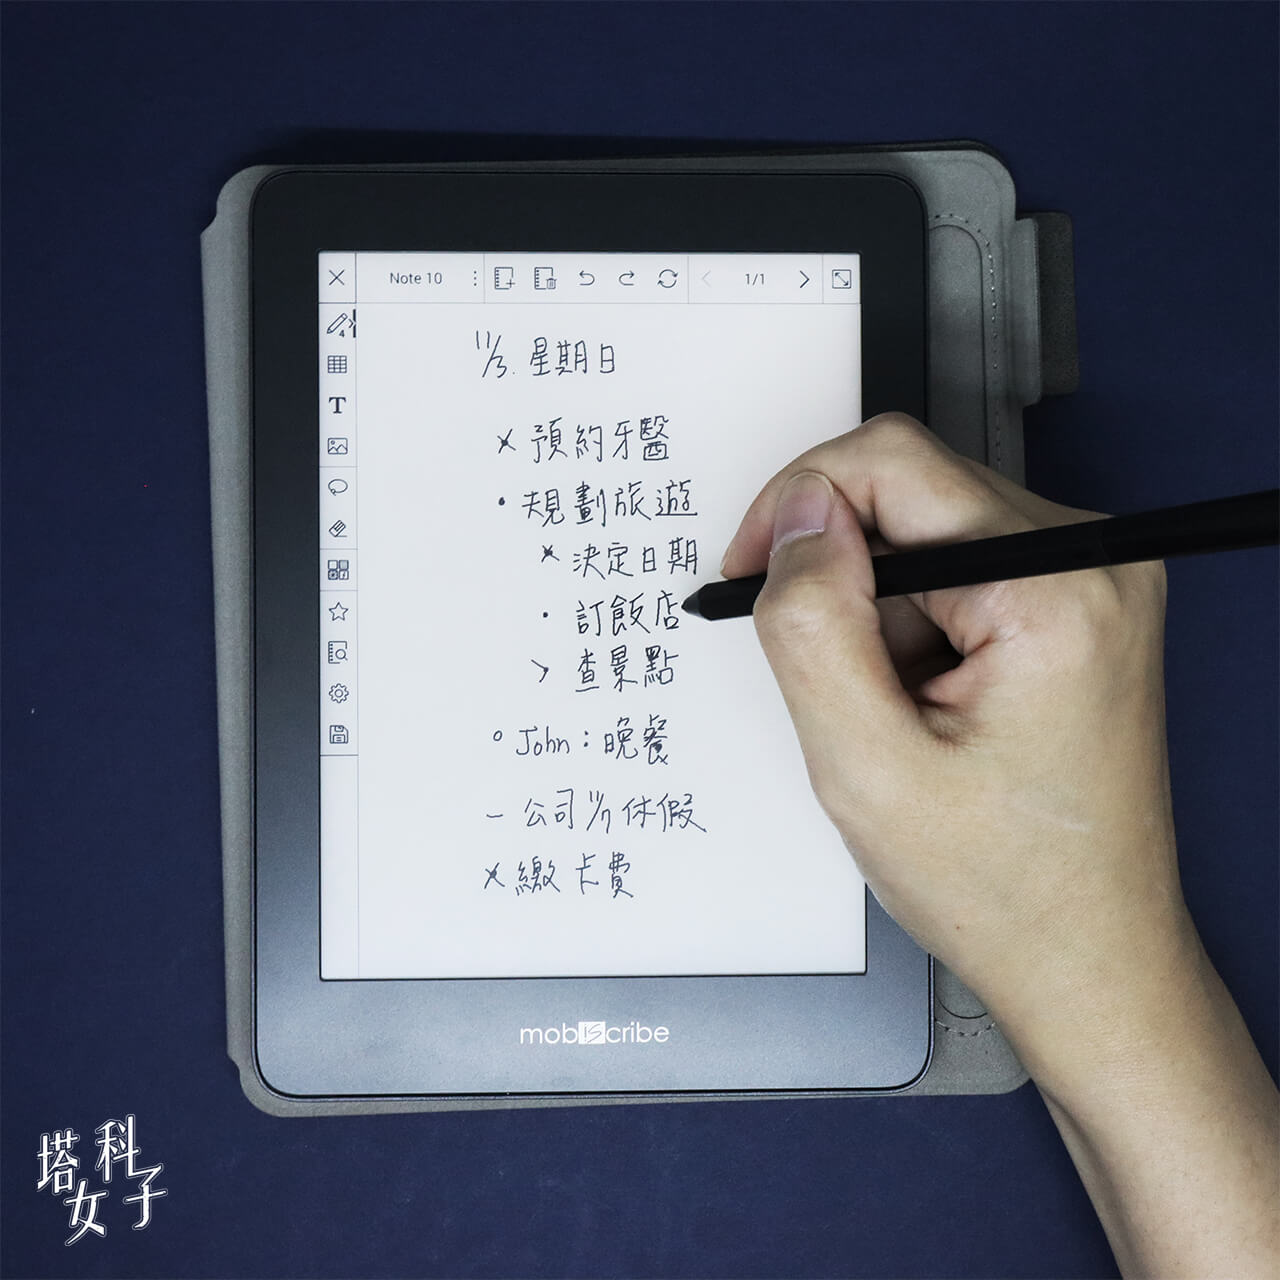 Note 10 1/1
T
11/3. 星期日
× 預約牙醫
• 規劃旅遊
× 決定日期
• 訂飯店
> 查景點
○ John：晚餐
– 公司 11/11 休假
× 繳卡費
mobiscribe
塔科女子